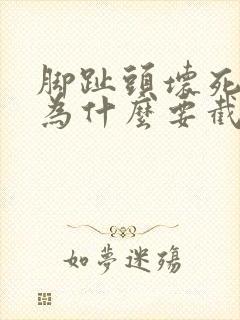 脚趾頭壞死
為什麼要截
如夢迷殤